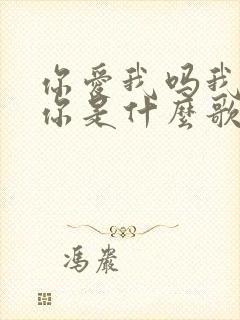 你愛我嗎我
你是什麼歌
馮巖